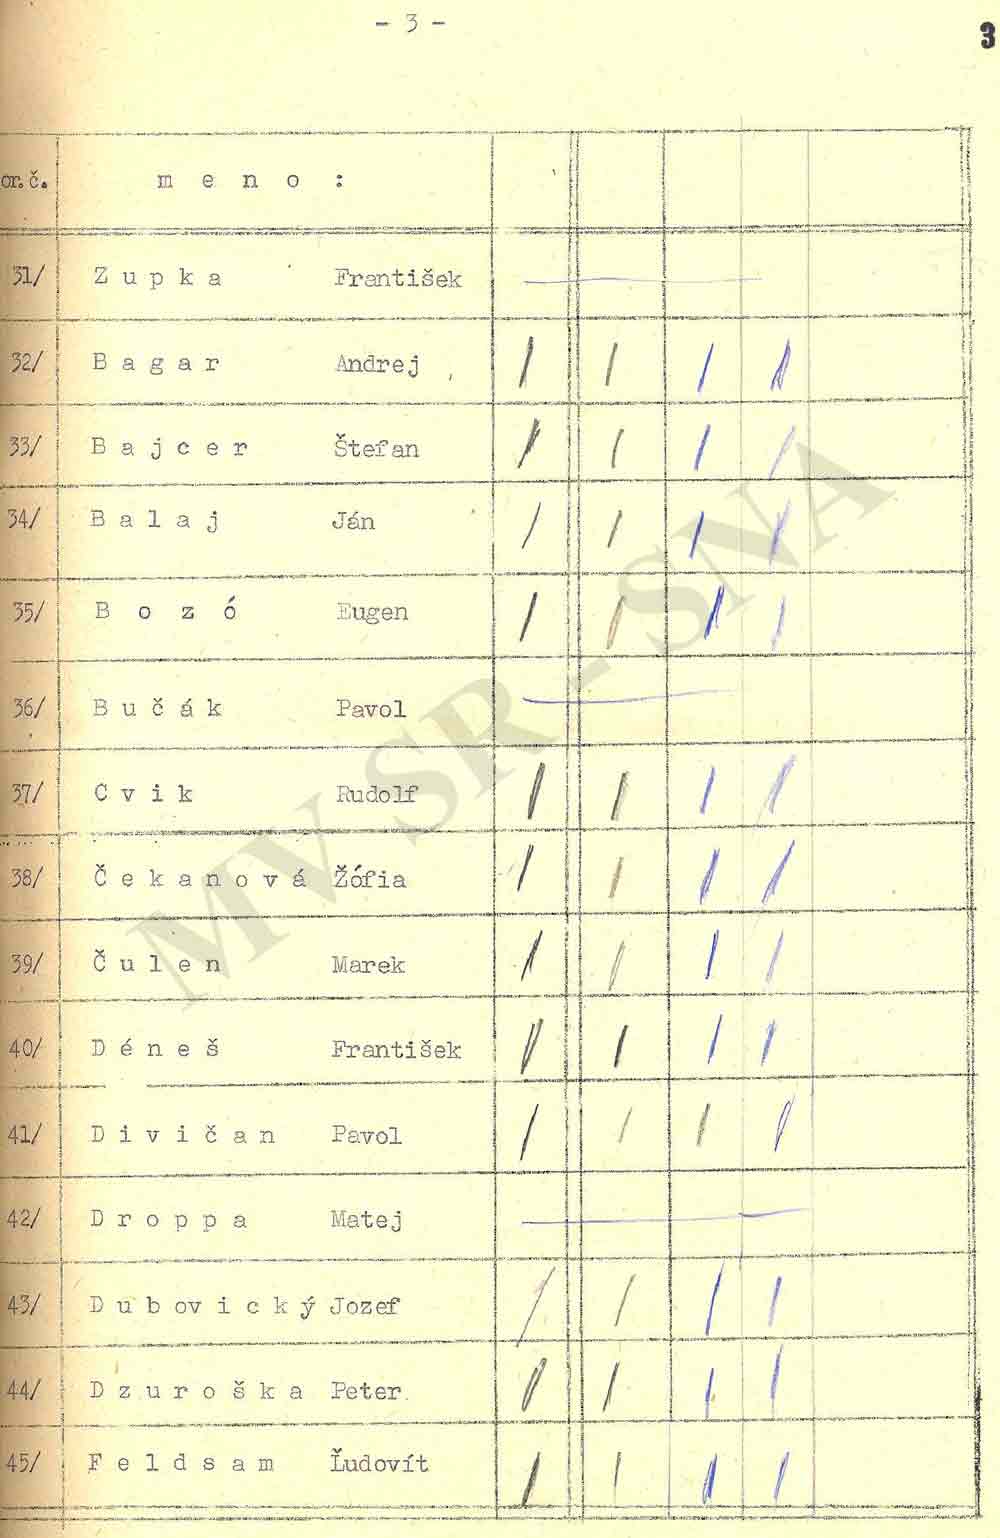 - 3 -
3
or. č. m e n o :
31/ Z u p k a František
32/ B a g a r Andrej
33/ B a j c e r Štefan
34/ B a l a j Ján
35/ B o z ó Eugen
36/ B u č á k Pavol
37/ C v i k Rudolf
38/ Č e k a n o v á Žófia
39/ Č u l e n Marek
40/ D é n e š František
41/ D i v i č a n Pavol
42/ D r o p p a Matej
43/ D u b o v i c k ý Jozef
44/ D z u r o š k a Peter
45/ F e l d s a m Ľudovít
MV SR - SNA